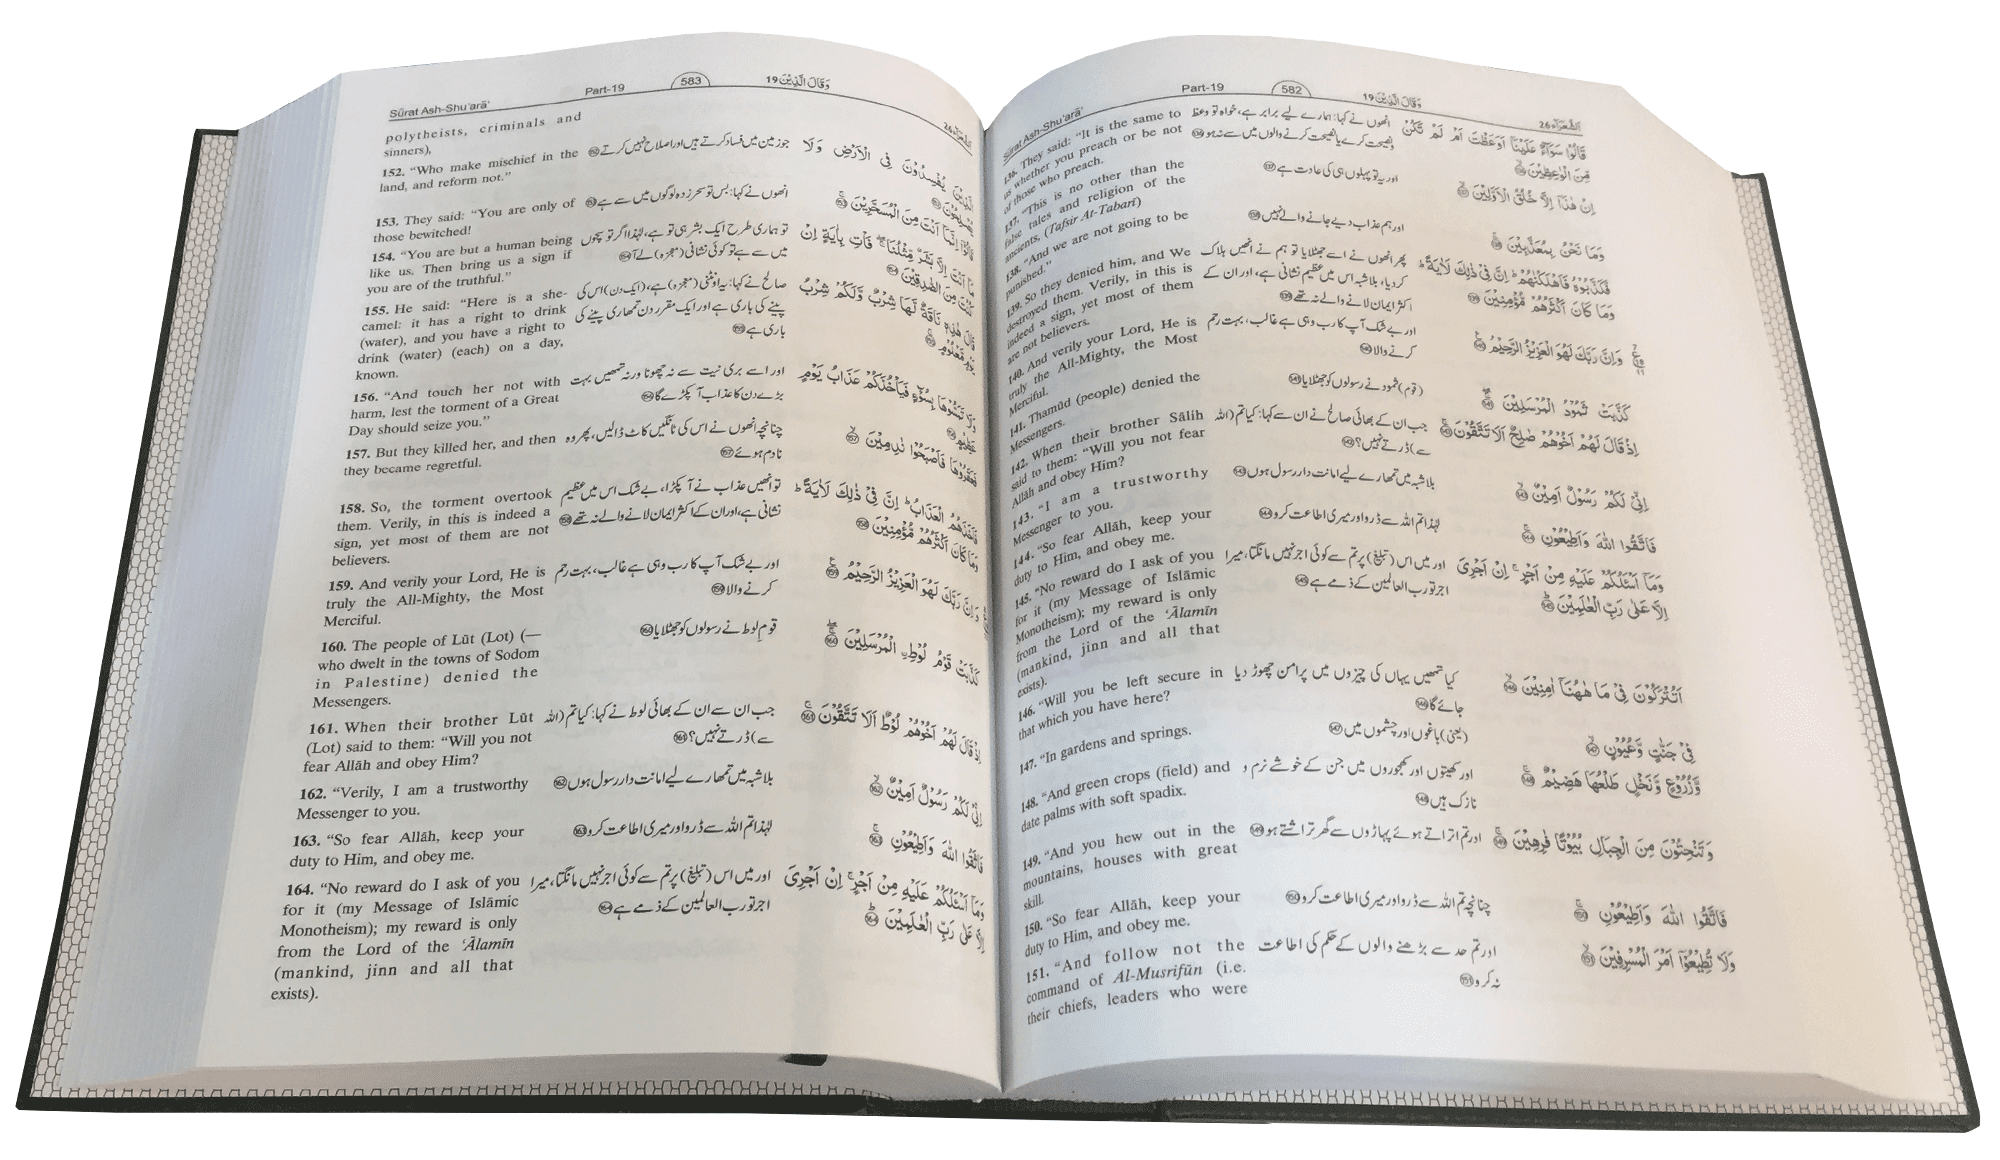 Sūrat Ash-Shu'arā'
Part-19
582
وَقَالَ الَّذِيْنَ 19
اَلشُّعَرَآء 26
136. They said: “It is the same to
us whether you preach or be not
of those who preach.
137. “This is no other than the
false tales and religion of the
ancients, (Tafsir At-Tabarī)
138. “And we are not going to be
punished.”
139. So they denied him, and We
destroyed them. Verily, in this is
indeed a sign, yet most of them
are not believers.
140. And verily your Lord, He is
truly the All-Mighty, the Most
Merciful.
141. Thamūd (people) denied the
Messengers.
142. When their brother Sālih
said to them: “Will you not fear
Allāh and obey Him?
143. “I am a trustworthy
Messenger to you.
144. “So fear Allāh, keep your
duty to Him, and obey me.
145. “No reward do I ask of you
for it (my Message of Islāmic
Monotheism); my reward is only
from the Lord of the ‘Ālamīn
(mankind, jinn and all that
exists).
146. “Will you be left secure in
that which you have here?
147. “In gardens and springs.
148. “And green crops (field) and
date palms with soft spadix.
149. “And you hew out in the
mountains, houses with great
skill.
150. “So fear Allāh, keep your
duty to Him, and obey me.
151. “And follow not the
command of Al-Musrifūn (i.e.
their chiefs, leaders who were
انھوں نے کہا: ہمارے لیے برابر ہے، خواہ تو وعظ
ونصیحت کرے یا نصیحت کرنے والوں میں سے نہ ہو 136
اور یہ تو پہلوں ہی کی عادت ہے 137
اور ہم عذاب دیے جانے والے نہیں 138
پھر انھوں نے اسے جھٹلایا تو ہم نے انھیں ہلاک
کر دیا، بلاشبہ اس میں عظیم نشانی ہے، اور ان کے
اکثر ایمان لانے والے نہ تھے 139
اور بے شک آپ کا رب وہی ہے غالب، بہت رحم
کرنے والا 140
(قوم) ثمود نے رسولوں کو جھٹلایا 141
جب ان کے بھائی صالح نے ان سے کہا: کیا تم (اللہ
سے) ڈرتے نہیں؟ 142
بلاشبہ میں تمھارے لیے امانت دار رسول ہوں 143
لہٰذا تم اللہ سے ڈرو اور میری اطاعت کرو 144
اور میں اس (تبلیغ) پر تم سے کوئی اجر نہیں مانگتا، میرا
اجر تو رب العالمین کے ذمے ہے 145
کیا تمھیں یہاں کی چیزوں میں پرامن چھوڑ دیا
جائے گا 146
(یعنی) باغوں اور چشموں میں 147
اور کھیتوں اور کھجوروں میں جن کے خوشے نرم و
نازک ہیں 148
اور تم اتراتے ہوئے پہاڑوں سے گھر تراشتے ہو 149
چنانچہ تم اللہ سے ڈرو اور میری اطاعت کرو 150
اور تم حد سے بڑھنے والوں کے حکم کی اطاعت
نہ کرو 151
قَالُوْا سَوَآءٌ عَلَيْنَآ اَوَعَظْتَ اَمْ لَمْ تَكُنْ
مِّنَ الْوٰعِظِيْنَ 136
اِنْ هٰذَآ اِلَّا خُلُقُ الْاَوَّلِيْنَ 137
وَمَا نَحْنُ بِمُعَذَّبِيْنَ 138
فَكَذَّبُوْهُ فَاَهْلَكْنٰهُمْ ۭ اِنَّ فِيْ ذٰلِكَ لَاٰيَةً ۭ
وَمَا كَانَ اَكْثَرُهُمْ مُّؤْمِنِيْنَ 139
وَاِنَّ رَبَّكَ لَهُوَ الْعَزِيْزُ الرَّحِيْمُ 140
كَذَّبَتْ ثَمُوْدُ الْمُرْسَلِيْنَ 141
اِذْ قَالَ لَهُمْ اَخُوْهُمْ صٰلِحٌ اَلَا تَتَّقُوْنَ 142
اِنِّيْ لَكُمْ رَسُوْلٌ اَمِيْنٌ 143
فَاتَّقُوا اللّٰهَ وَاَطِيْعُوْنِ 144
وَمَآ اَسْئَلُكُمْ عَلَيْهِ مِنْ اَجْرٍ ۚ اِنْ اَجْرِيَ
اِلَّا عَلٰى رَبِّ الْعٰلَمِيْنَ 145
اَتُتْرَكُوْنَ فِيْ مَا هٰهُنَآ اٰمِنِيْنَ 146
فِيْ جَنّٰتٍ وَّعُيُوْنٍ 147
وَّزُرُوْعٍ وَّنَخْلٍ طَلْعُهَا هَضِيْمٌ 148
وَتَنْحِتُوْنَ مِنَ الْجِبَالِ بُيُوْتًا فٰرِهِيْنَ 149
فَاتَّقُوا اللّٰهَ وَاَطِيْعُوْنِ 150
وَلَا تُطِيْعُوْٓا اَمْرَ الْمُسْرِفِيْنَ 151
Sūrat Ash-Shu'arā'
Part-19
583
وَقَالَ الَّذِيْنَ 19
اَلشُّعَرَآء 26
polytheists, criminals and
sinners),
152. “Who make mischief in the
land, and reform not.”
153. They said: “You are only of
those bewitched!
154. “You are but a human being
like us. Then bring us a sign if
you are of the truthful.”
155. He said: “Here is a she-
camel: it has a right to drink
(water), and you have a right to
drink (water) (each) on a day,
known.
156. “And touch her not with
harm, lest the torment of a Great
Day should seize you.”
157. But they killed her, and then
they became regretful.
158. So, the torment overtook
them. Verily, in this is indeed a
sign, yet most of them are not
believers.
159. And verily your Lord, He is
truly the All-Mighty, the Most
Merciful.
160. The people of Lūt (Lot) (—
who dwelt in the towns of Sodom
in Palestine) denied the
Messengers.
161. When their brother Lūt
(Lot) said to them: “Will you not
fear Allāh and obey Him?
162. “Verily, I am a trustworthy
Messenger to you.
163. “So fear Allāh, keep your
duty to Him, and obey me.
164. “No reward do I ask of you
for it (my Message of Islāmic
Monotheism); my reward is only
from the Lord of the ‘Ālamīn
(mankind, jinn and all that
exists).
جو زمین میں فساد کرتے ہیں اور اصلاح نہیں کرتے 152
انھوں نے کہا: بس تو سحر زدہ لوگوں میں سے ہے 153
تو ہماری طرح ایک بشر ہی تو ہے، لہٰذا اگر تو سچوں
میں سے ہے تو کوئی نشانی (معجزہ) لے آ 154
صالح نے کہا: یہ اونٹنی (معجزہ) ہے، (ایک دن) اس کی
پینے کی باری ہے اور ایک مقرر دن تمھاری پینے کی
باری ہے 155
اور اسے بری نیت سے نہ چھونا ورنہ تمھیں بہت
بڑے دن کا عذاب آ پکڑے گا 156
چنانچہ انھوں نے اس کی ٹانگیں کاٹ ڈالیں، پھر وہ
نادم ہوئے 157
تو انھیں عذاب نے آ پکڑا، بے شک اس میں عظیم
نشانی ہے، اور ان کے اکثر ایمان لانے والے نہ تھے 158
اور بے شک آپ کا رب وہی ہے غالب، بہت رحم
کرنے والا 159
قوم لوط نے رسولوں کو جھٹلایا 160
جب ان سے ان کے بھائی لوط نے کہا: کیا تم (اللہ
سے) ڈرتے نہیں؟ 161
بلاشبہ میں تمھارے لیے امانت دار رسول ہوں 162
لہٰذا تم اللہ سے ڈرو اور میری اطاعت کرو 163
اور میں اس (تبلیغ) پر تم سے کوئی اجر نہیں مانگتا، میرا
اجر تو رب العالمین کے ذمے ہے 164
الَّذِيْنَ يُفْسِدُوْنَ فِي الْاَرْضِ وَلَا
يُصْلِحُوْنَ 152
قَالُوْٓا اِنَّمَآ اَنْتَ مِنَ الْمُسَحَّرِيْنَ 153
مَآ اَنْتَ اِلَّا بَشَرٌ مِّثْلُنَا ۚ فَاْتِ بِاٰيَةٍ اِنْ
كُنْتَ مِنَ الصّٰدِقِيْنَ 154
قَالَ هٰذِهٖ نَاقَةٌ لَّهَا شِرْبٌ وَّلَكُمْ شِرْبُ
يَوْمٍ مَّعْلُوْمٍ 155
وَلَا تَمَسُّوْهَا بِسُوْٓءٍ فَيَاْخُذَكُمْ عَذَابُ يَوْمٍ
عَظِيْمٍ 156
فَعَقَرُوْهَا فَاَصْبَحُوْا نٰدِمِيْنَ 157
فَاَخَذَهُمُ الْعَذَابُ ۭ اِنَّ فِيْ ذٰلِكَ لَاٰيَةً ۭ
وَمَا كَانَ اَكْثَرُهُمْ مُّؤْمِنِيْنَ 158
وَاِنَّ رَبَّكَ لَهُوَ الْعَزِيْزُ الرَّحِيْمُ 159
كَذَّبَتْ قَوْمُ لُوْطِ ۨ الْمُرْسَلِيْنَ 160
اِذْ قَالَ لَهُمْ اَخُوْهُمْ لُوْطٌ اَلَا تَتَّقُوْنَ 161
اِنِّيْ لَكُمْ رَسُوْلٌ اَمِيْنٌ 162
فَاتَّقُوا اللّٰهَ وَاَطِيْعُوْنِ 163
وَمَآ اَسْئَلُكُمْ عَلَيْهِ مِنْ اَجْرٍ ۚ اِنْ اَجْرِيَ
اِلَّا عَلٰى رَبِّ الْعٰلَمِيْنَ 164